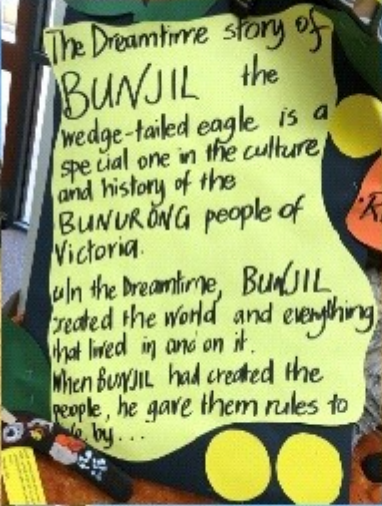 The Dreamtime story of
BUNJIL the
wedge-tailed eagle is a
special one in the culture
and history of the
BUNURONG people of
Victoria.
In the Dreamtime, BUNJIL
created the world and everything
that lived in and on it.
When BUNJIL had created the
people, he gave them rules to
by...